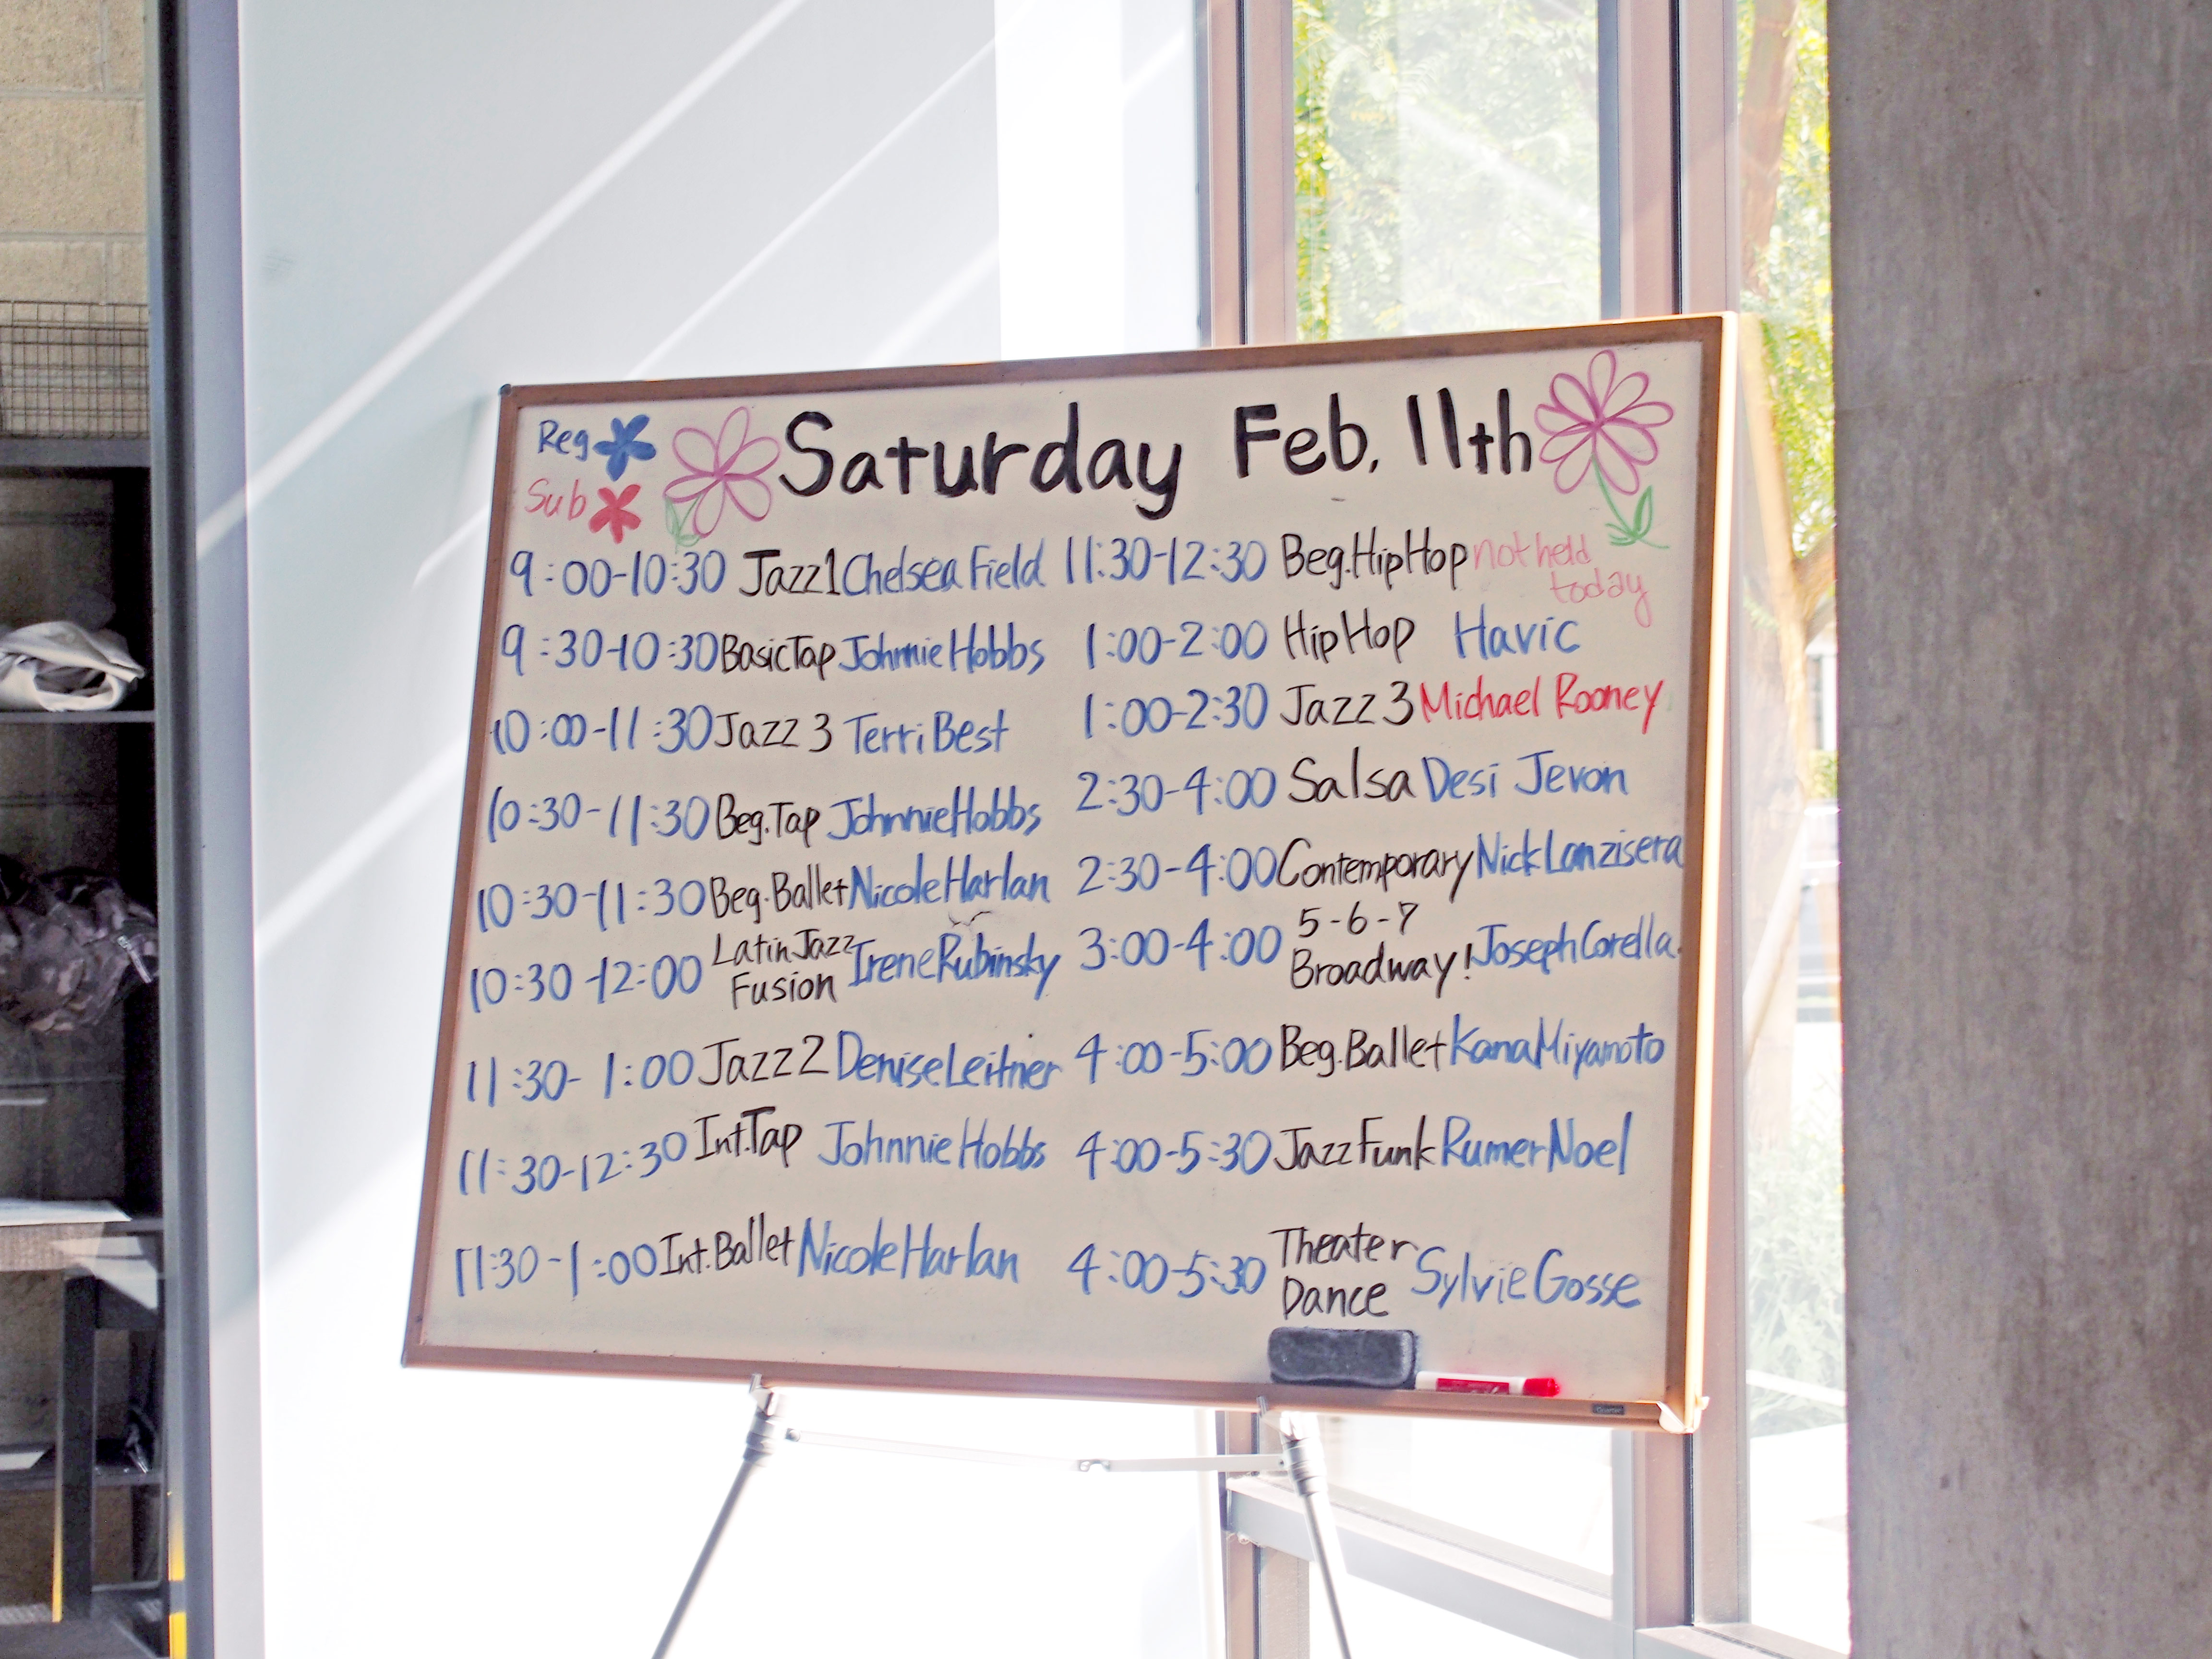 Reg
Sub
Saturday Feb. 11th
9:00-10:30 Jazz1 Chelsea Field
9:30-10:30 Basic Tap Johnnie Hobbs
10:00-11:30 Jazz 3 Terri Best
10:30-11:30 Beg. Tap Johnnie Hobbs
10:30-11:30 Beg. Ballet Nicole Harlan
10:30-12:00 Latin Jazz Irene Rubinsky
Fusion
11:30-1:00 Jazz 2 Denise Leitner
11:30-12:30 Int. Tap Johnnie Hobbs
11:30-1:00 Int. Ballet Nicole Harlan
11:30-12:30 Beg. Hip Hop not held
today
1:00-2:00 Hip Hop Havic
1:00-2:30 Jazz 3 Michael Rooney
2:30-4:00 Salsa Desi Jevon
2:30-4:00 Contemporary Nick Lanzisera
5-6-7
3:00-4:00 Broadway! Joseph Corella
4:00-5:00 Beg. Ballet Kana Miyamoto
4:00-5:30 Jazz Funk Rumer Noel
Theater
4:00-5:30 Dance Sylvie Gosse